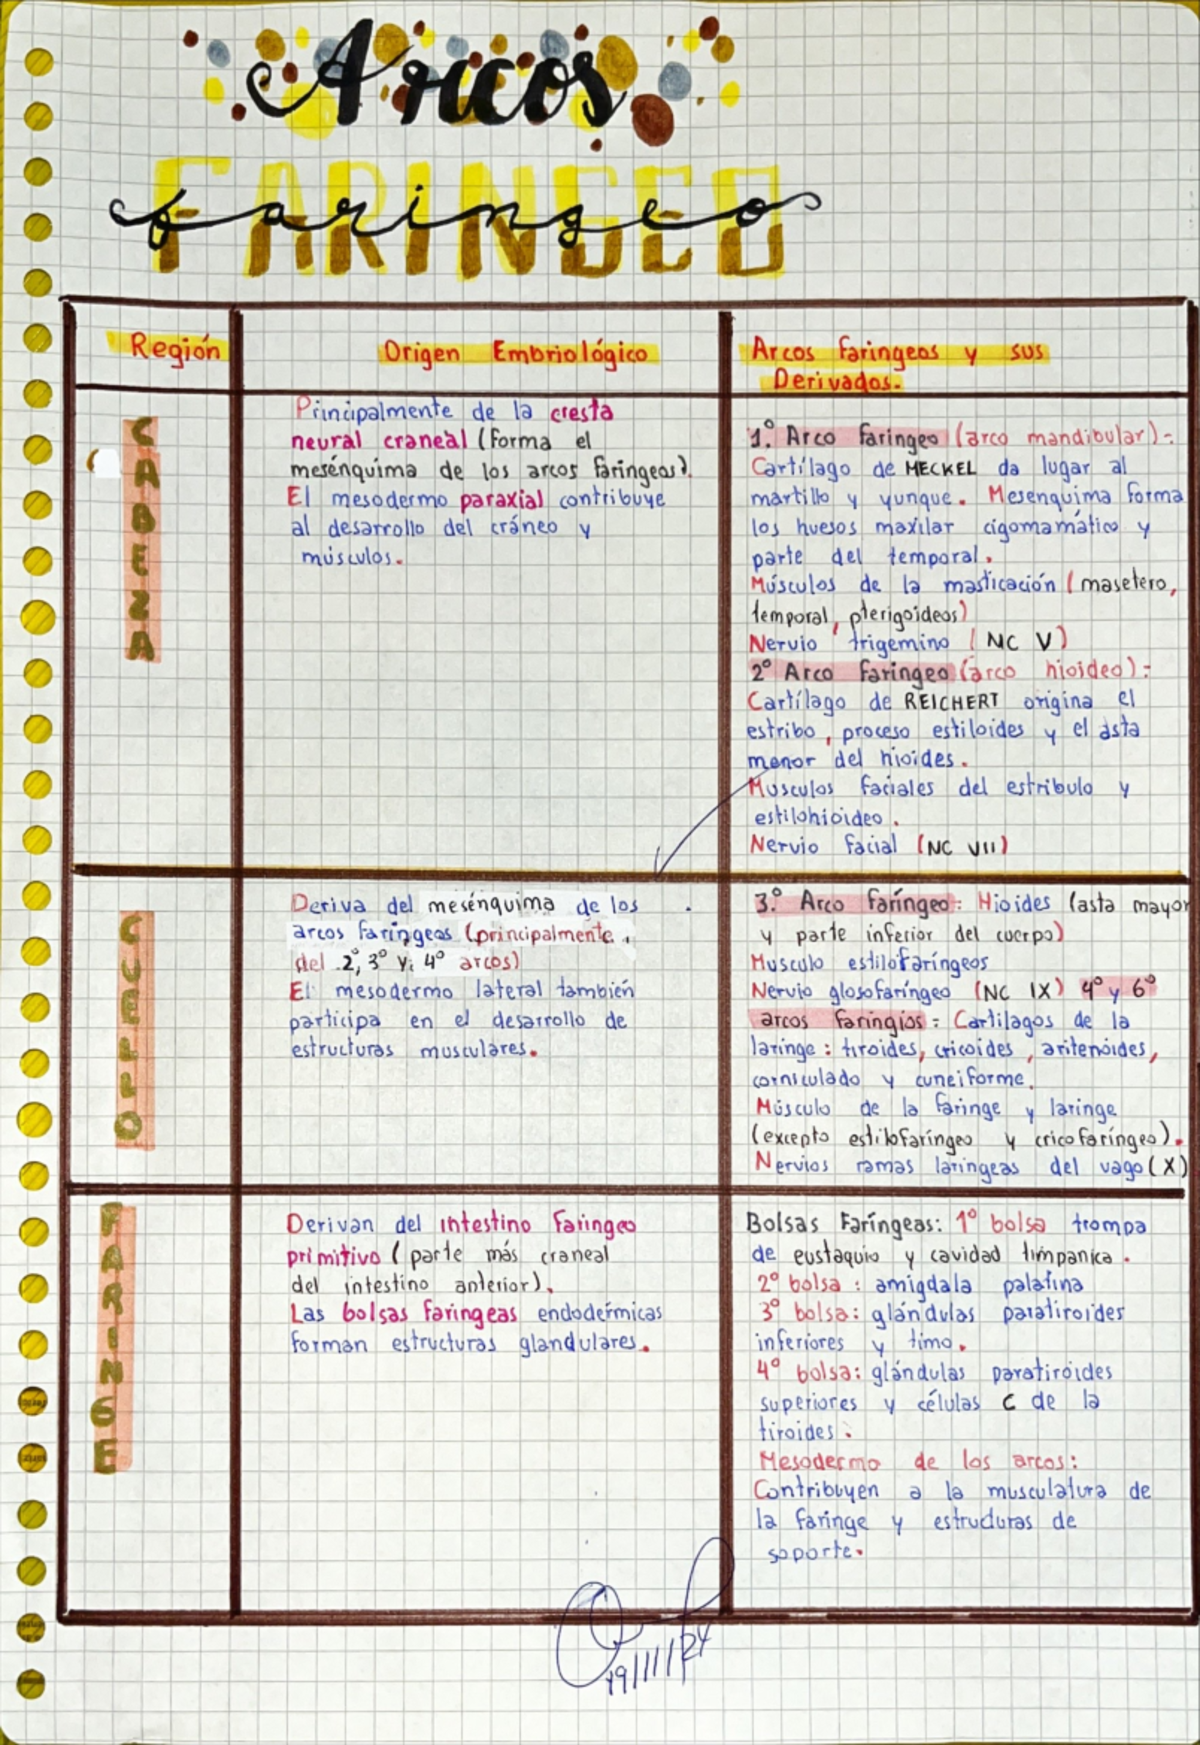 Arcos
FARINGEO
faringeo
Región
Origen Embriológico
Arcos faringeos y sus
Derivados.
CABEZA
Principalmente de la cresta
neural craneal (forma el
mesénquima de los arcos faringeos).
El mesodermo paraxial contribuye
al desarrollo del cráneo y
músculos.
1.º Arco faringeo (arco mandibular):
Cartílago de MECKEL da lugar al
martillo y yunque. Mesenquima forma
los huesos maxilar cigomamático y
parte del temporal.
Músculos de la masticación (masetero,
temporal, pterigoideos)
Nervio trigemino (NC V)
2º Arco faringeo (arco hioideo):
Cartílago de REICHERT origina el
estribo, proceso estiloides y el asta
menor del hioides.
Musculos faciales del estribulo y
estilohioideo.
Nervio facial (NC VII)
CUELLO
Deriva del mesénquima de los
arcos faringeos (principalmente
del 2º, 3º y 4º arcos)
El mesodermo lateral también
participa en el desarrollo de
estructuras musculares.
3.º Arco faríngeo: Hioides (asta mayor
y parte inferior del cuerpo)
Musculo estilofaríngeos
Nervio glosofaríngeo (NC IX) 4º y 6º
arcos faringios: Cartilagos de la
laringe: tiroides, cricoides, aritenoides,
corniculado y cuneiforme.
Músculo de la faringe y laringe
(excepto estilofaríngeo y cricofaríngeo).
Nervios ramas laríngeas del vago (X)
FARINGE
Derivan del intestino Faringeo
primitivo (parte más craneal
del intestino anterior).
Las bolsas faringeas endodérmicas
forman estructuras glandulares.
Bolsas Faríngeas: 1º bolsa trompa
de eustaquio y cavidad timpanica.
2º bolsa: amigdala palatina
3º bolsa: glándulas paratiroides
inferiores y timo.
4º bolsa: glándulas paratiroides
superiores y células C de la
tiroides.
Mesodermo de los arcos:
Contribuyen a la musculatura de
la faringe y estructuras de
soporte.
19/11/24